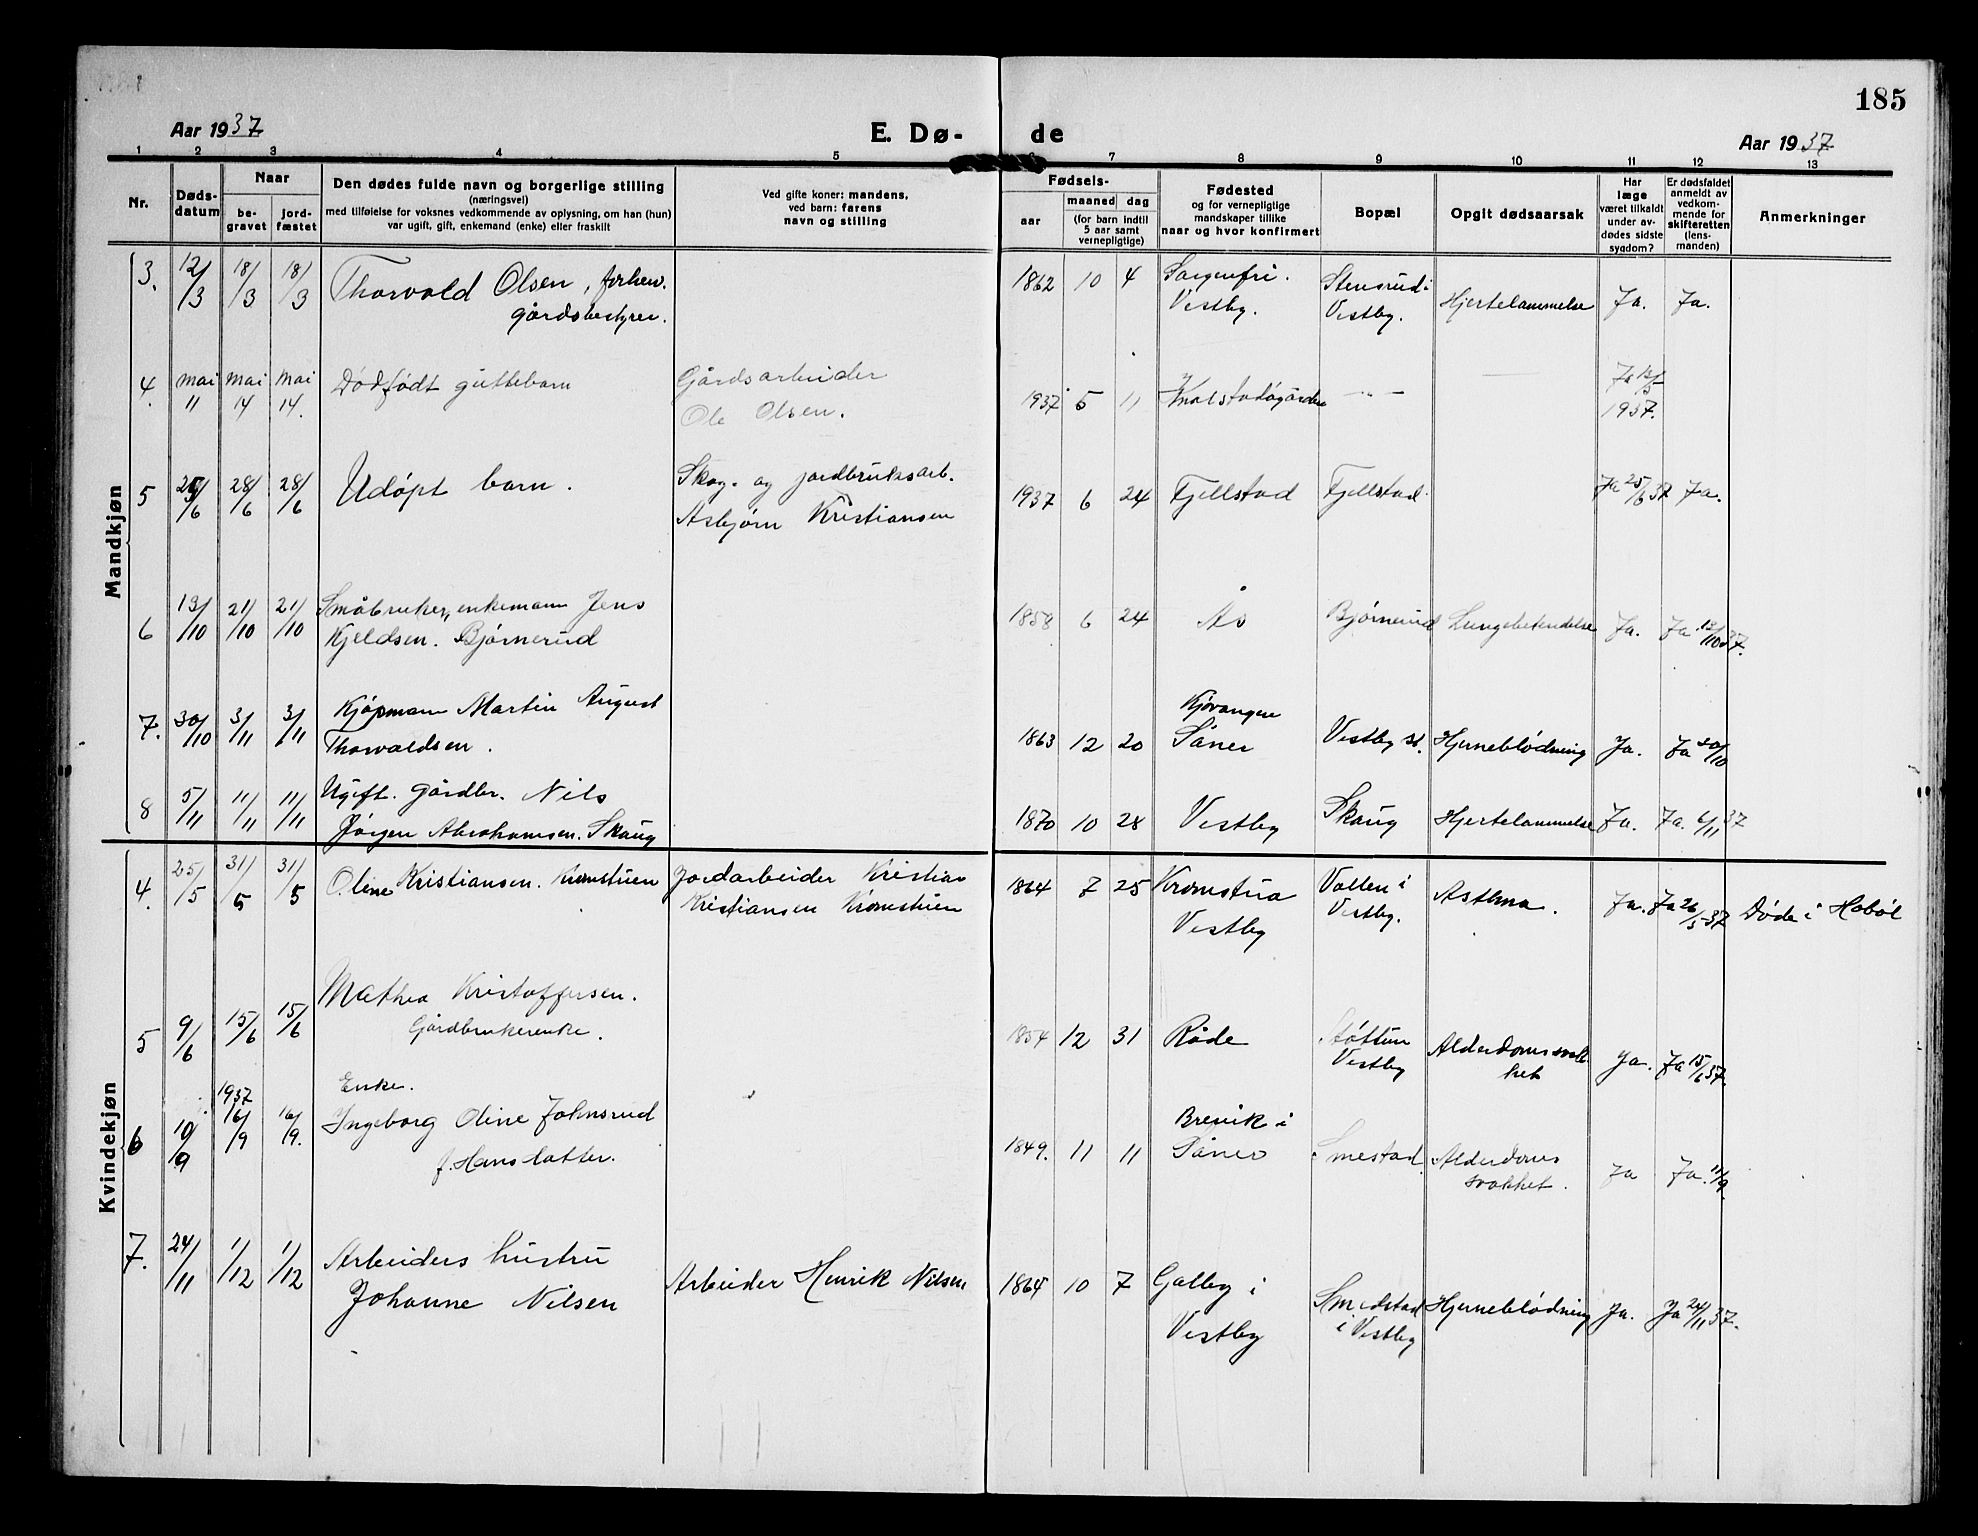 185
Aar 1937
E. Dø-
de
Aar 1937
1 2 3 4 5 7 8 9 10 11 12 13
Nr.
Døds-
datum
Naar
be-
gravet
jord-
fæstet
Den dødes fulde navn og borgerlige stilling
(næringsvei)
med tilføielse for voksnes vedkommende av oplysning, om han (hun)
var ugift, gift, enkemand (enke) eller fraskilt
Ved gifte koner: mandens,
ved barn: farens
navn og stilling
Fødsels-
aar
maaned dag
(for barn indtil
5 aar samt
vernepligtige)
Fødested
og for vernepligtige
mandskaper tillike
naar og hvor konfirmert
Bopæl
Opgit dødsaarsak
Har
læge
været tilkaldt
under av-
dødes sidste
sygdom?
Er dødsfaldet
anmeldt av
vedkom-
mende for
skifteretten
(lens-
manden)
Anmerkninger
Mandkjøn
3. 12/3 18/3 18/3 Thorvald Olsen, forhen.
gårdsbestyrer.
1862 10 4 Sorgenfri.
Vestby.
Stensrud i
Vestby.
Hjertelammelse Ja. Ja.
4. mai 11 mai 14 mai 14. Dødfødt guttebarn
Gårdsarbeider
Ole Olsen.
1937 5 11 Knolstadgården — Ja 12/5
1937.
5 25/6 28/6 28/6 Udøpt barn.
Skog- og jordbruksarb.
Asbjørn Kristiansen
1937 6 24 Fjellstad Fjellstad. Ja 25/6 37 Ja.
6 13/10 21/10 21/10 Småbruker, enkemann Jens
Kjeldsen. Bjørnerud
1858 6 24 Ås Bjørnerud Lungebetendelse Ja. Ja 13/10 37.
7. 30/10 3/11 3/11 Kjøpmann Martin August
Thorvaldsen.
1863 12 20 Kjøvangen
Såner
Vestby st. Hjerneblødning Ja. Ja 30/10
8 5/11 11/11 11/11 Ugift. gårdbr. Nils
Jørgen Abrahamsen. Skaug
1870 10 28 Vestby Skaug Hjertelammelse Ja. Ja. 6/11 37
Kvindekjøn
4. 25/5 31/5 31/5 Oline Kristiansen. Kromstuen
Jordarbeider Kristian
Kristiansen Kromstuen
1864 7 25 Kromstua
Vestby
Vollen i
Vestby.
Asthma. Ja. Ja 26/5 37 Døde i Hobøl
5 9/6 15/6 15/6 Mathea Kristoffersen.
Gårdbrukerenke.
1854 12 31 Råde
Støttum
Vestby
Alderdomssvak-
het
Ja. Ja 15/6 37.
6 10/9 1937 16/9 16/9. Enke.
Ingeborg Oline Johnsrud
f. Hanslatter.
1849. 11 11 Brevik i
Såner
Smestad Alderdoms
svakhet.
Ja Ja. 11/9.
7. 24/11 1/12 1/12 Arbeiders hustru
Johanne Nilsen
Arbeider Henrik Nilsen
1864 10 7 Galby i
Vestby
Smedstad
i Vestby
Hjerneblødning Ja. Ja 24/11 37.